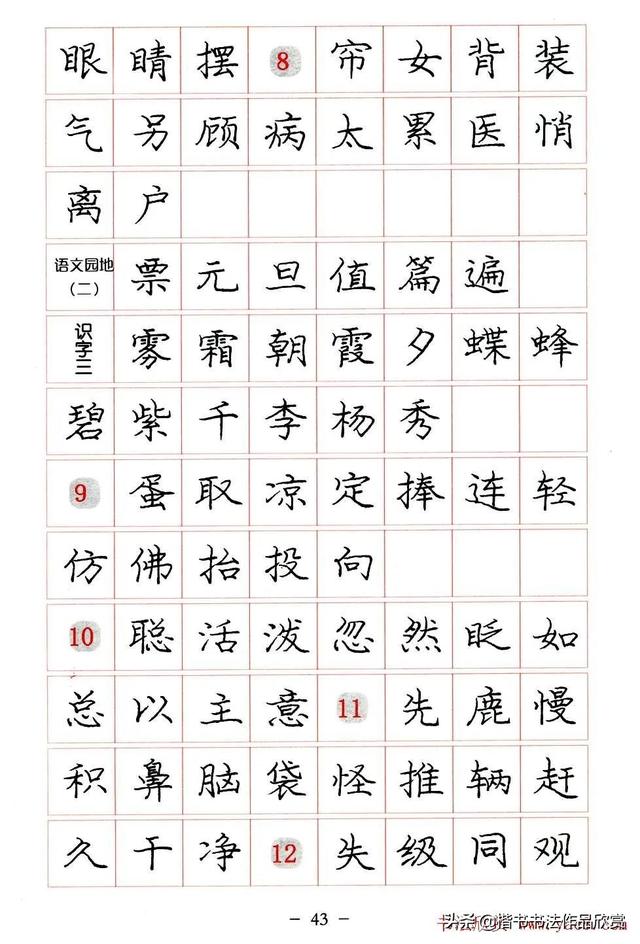 眼 睛 摆 8 帘 女 背 装
气 另 顾 病 太 累 医 悄
离 户
语文园地（二） 票 元 旦 值 篇 遍
识字三 雾 霜 朝 霞 夕 蝶 蜂
碧 紫 千 李 杨 秀
9 蛋 取 凉 定 捧 连 轻
仿 佛 抬 投 向
10 聪 活 泼 忽 然 眨 如
总 以 主 意 11 先 鹿 慢
积 鼻 脑 袋 怪 推 辆 赶
久 干 净 12 失 级 同 观
- 43 -
头条@楷书书法作品欣赏